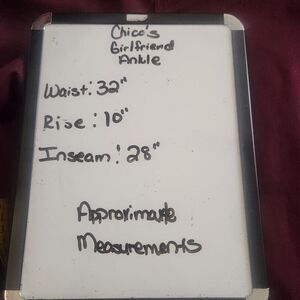 Chico's
Girlfriend
Ankle
Waist: 32"
Rise: 10"
Inseam: 28"
Approximate
Measurements